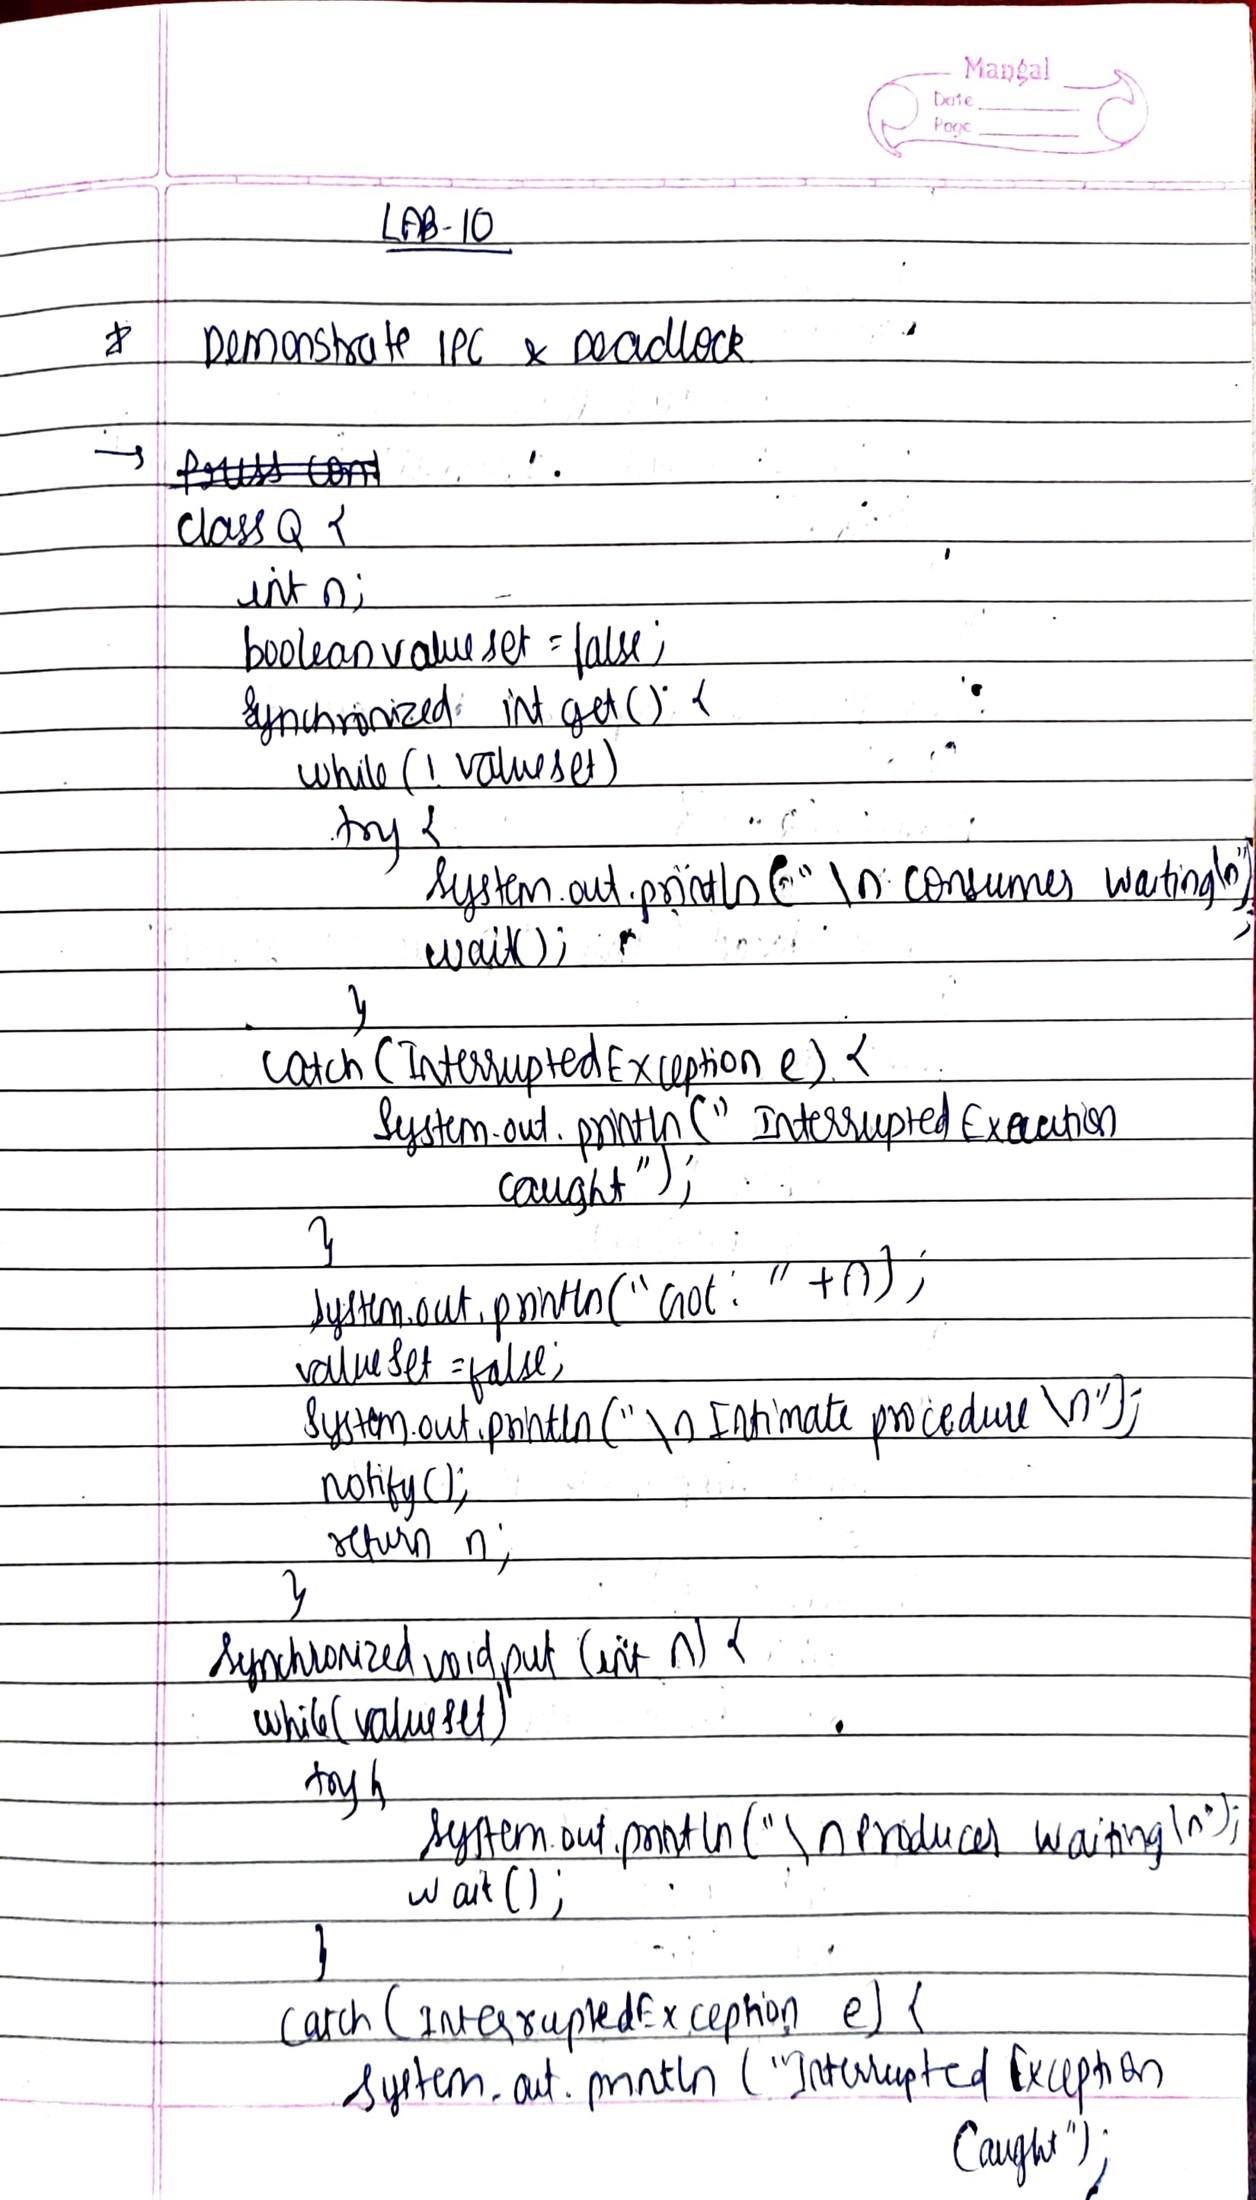 Mangal
Date
Page
LAB-10
* Demonstrate IPC & Deadlock
→
class Q {
int n;
boolean valueset = false;
synchronized int get() {
while (! valueset)
try {
System.out.println ("\n consumer waiting\n");
wait();
}
catch (InterruptedException e) {
System.out.println(" Interrupted Execution
caught");
}
System.out.println("Got: " +n);
valueset = false;
System.out.println("\n Intimate procedure \n");
notify();
return n;
}
Synchronized void put (int n) {
while(valueset)
try {
System.out.println("\n Producer waiting\n");
wait();
}
catch (InterruptedException e) {
System.out.println ("Interrupted Exception
Caught");